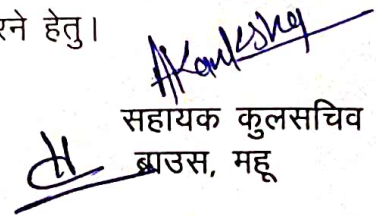 रने हेतु।
Akanksha
सहायक कुलसचिव
ब्राउस, महू